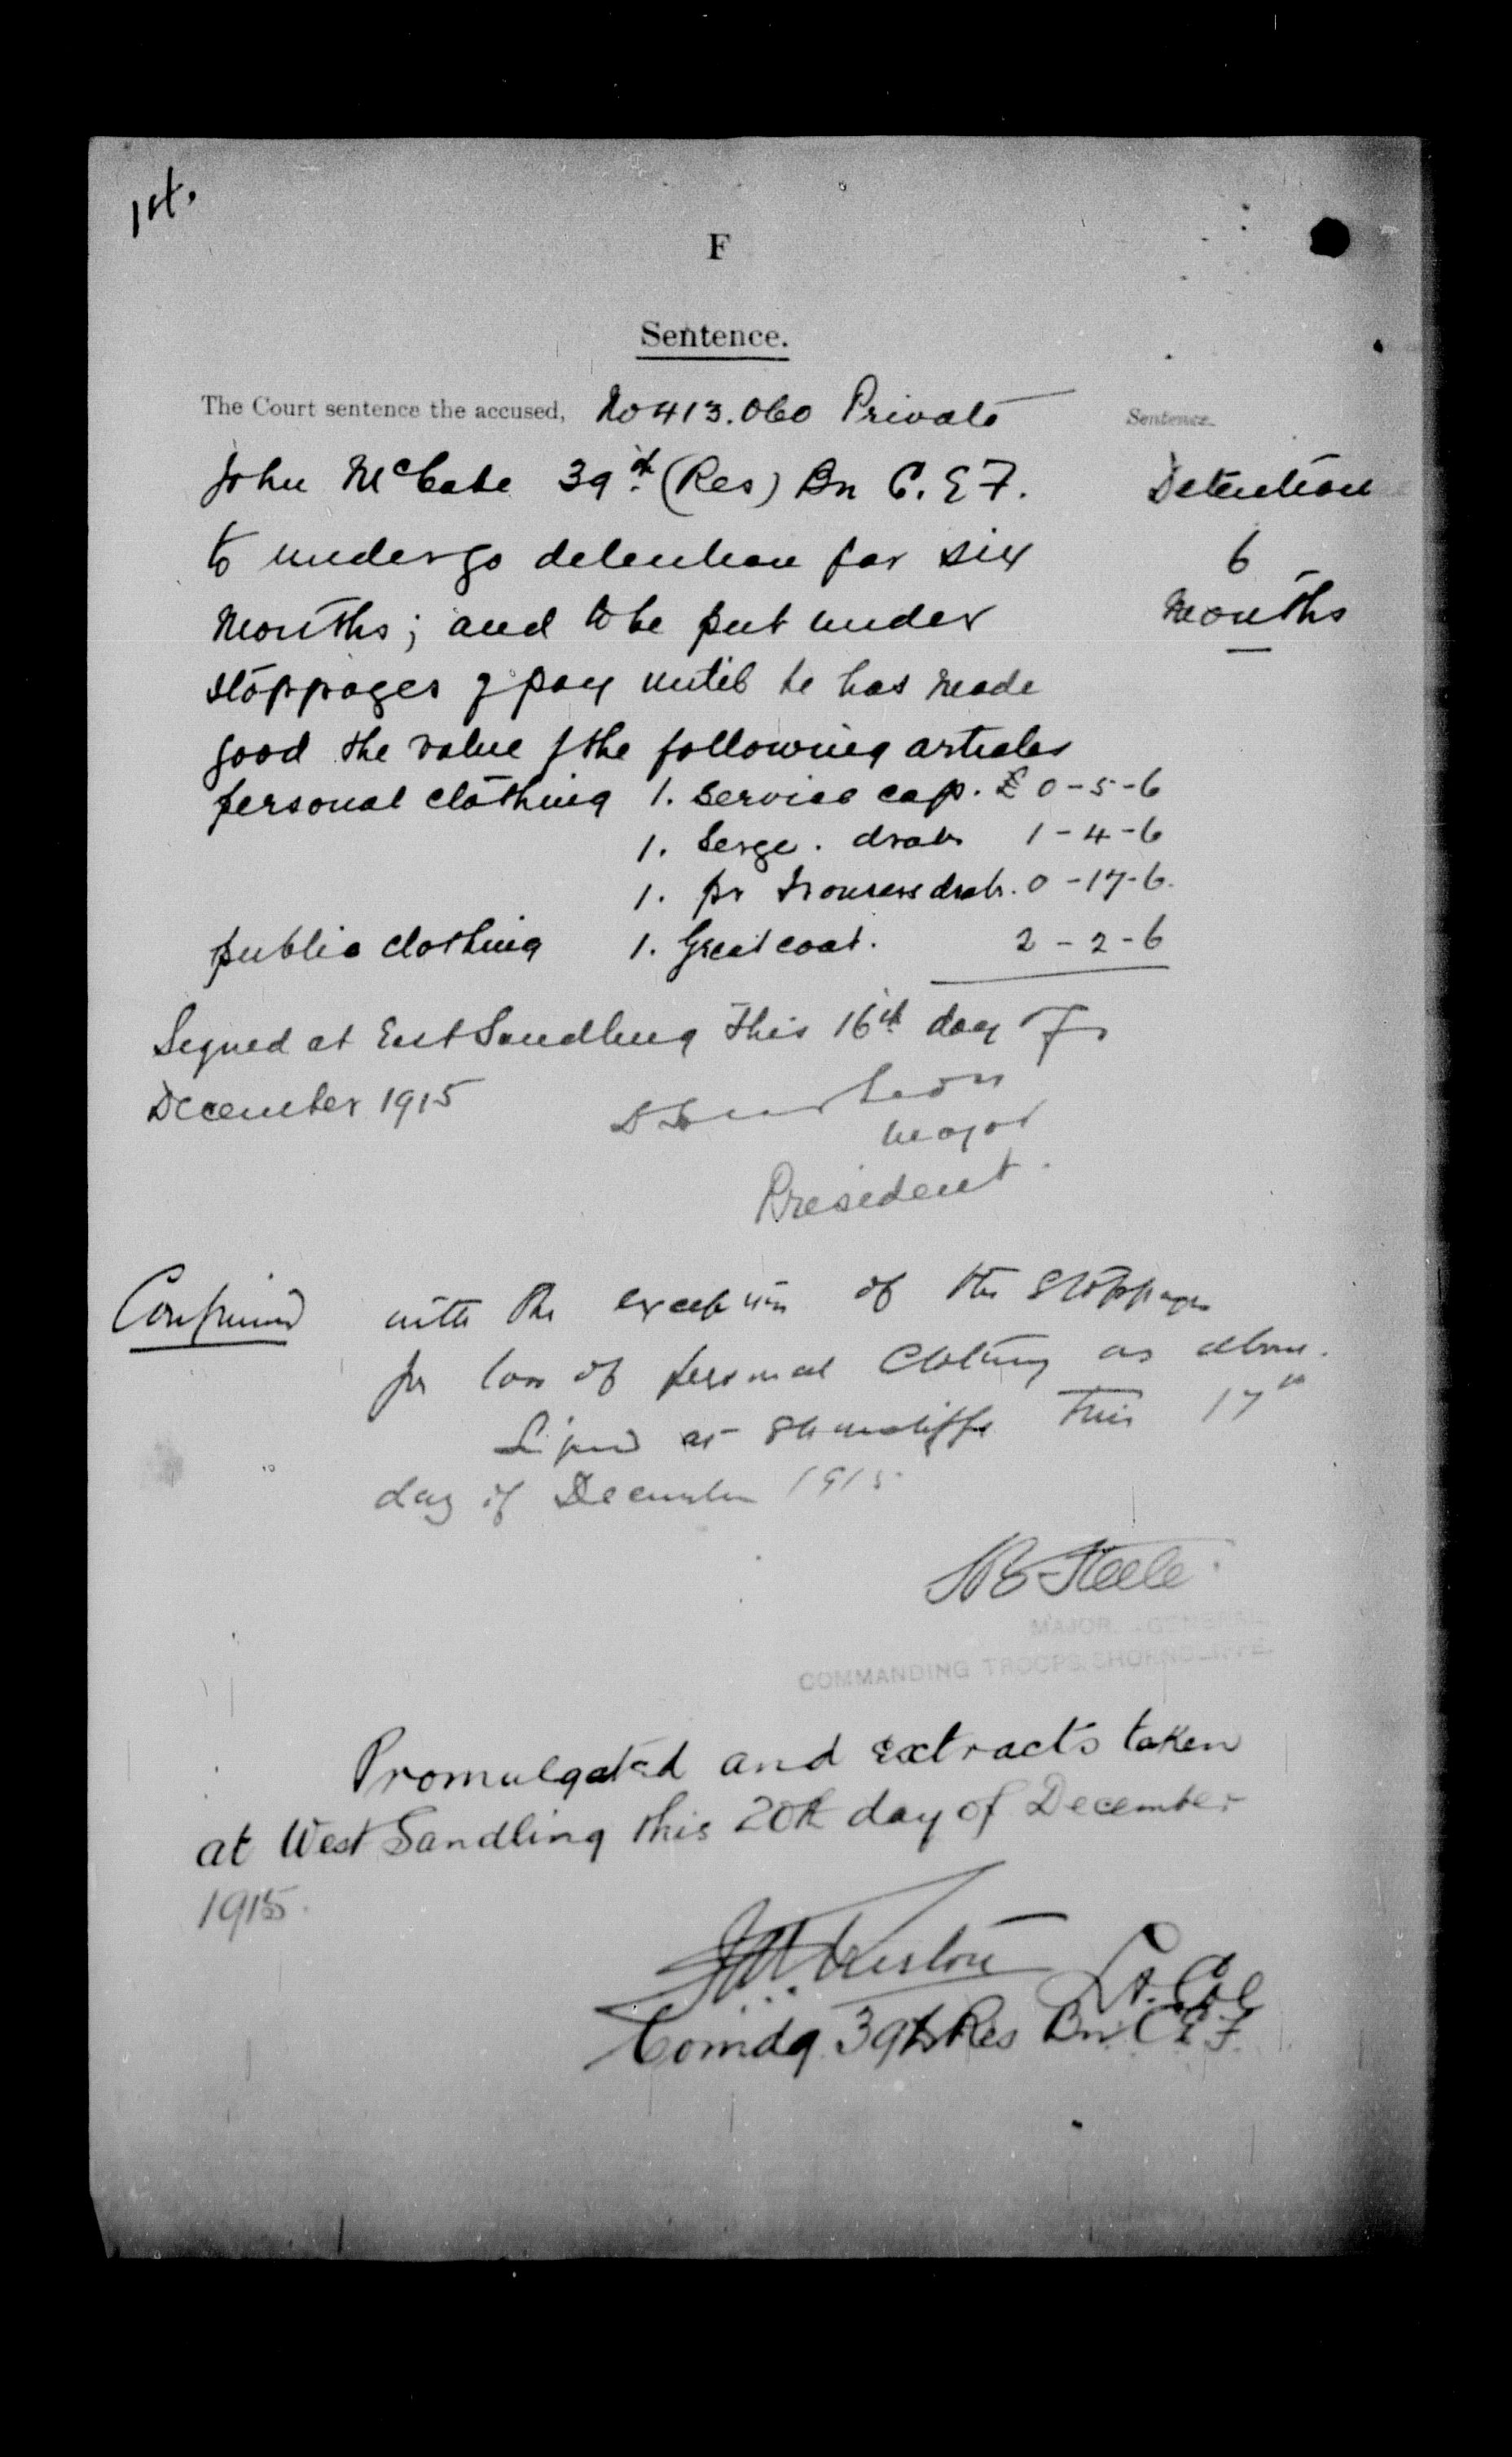 1st.
F
Sentence.
The Court sentence the accused, No 413.060 Private
John McCabe 39th (Res) Bn C.E.F.
to undergo detention for six
months; and to be put under
stoppages of pay until he has made
good the value of the following articles
personal clothing 1. Service cap. £ 0-5-6
1. Serge. drab 1-4-6
1. pr Trousers drab. 0-17-6.
public clothing 1. Great coat. 2-2-6
Sentence
Detention
6
Months
Signed at East Sandling this 16th day of
December 1915
Major
President.
Confirmed with the exception of the stoppages
for loss of personal clothing as above.
Signed at Shorncliffe this 17th
day of December 1915
S B Steele.
MAJOR-GENERAL
COMMANDING TROOPS, SHORNCLIFFE.
Promulgated and extracts taken
at West Sandling this 20th day of December
1915.
Lt. Col
Comdg 39th Res Bn CEF